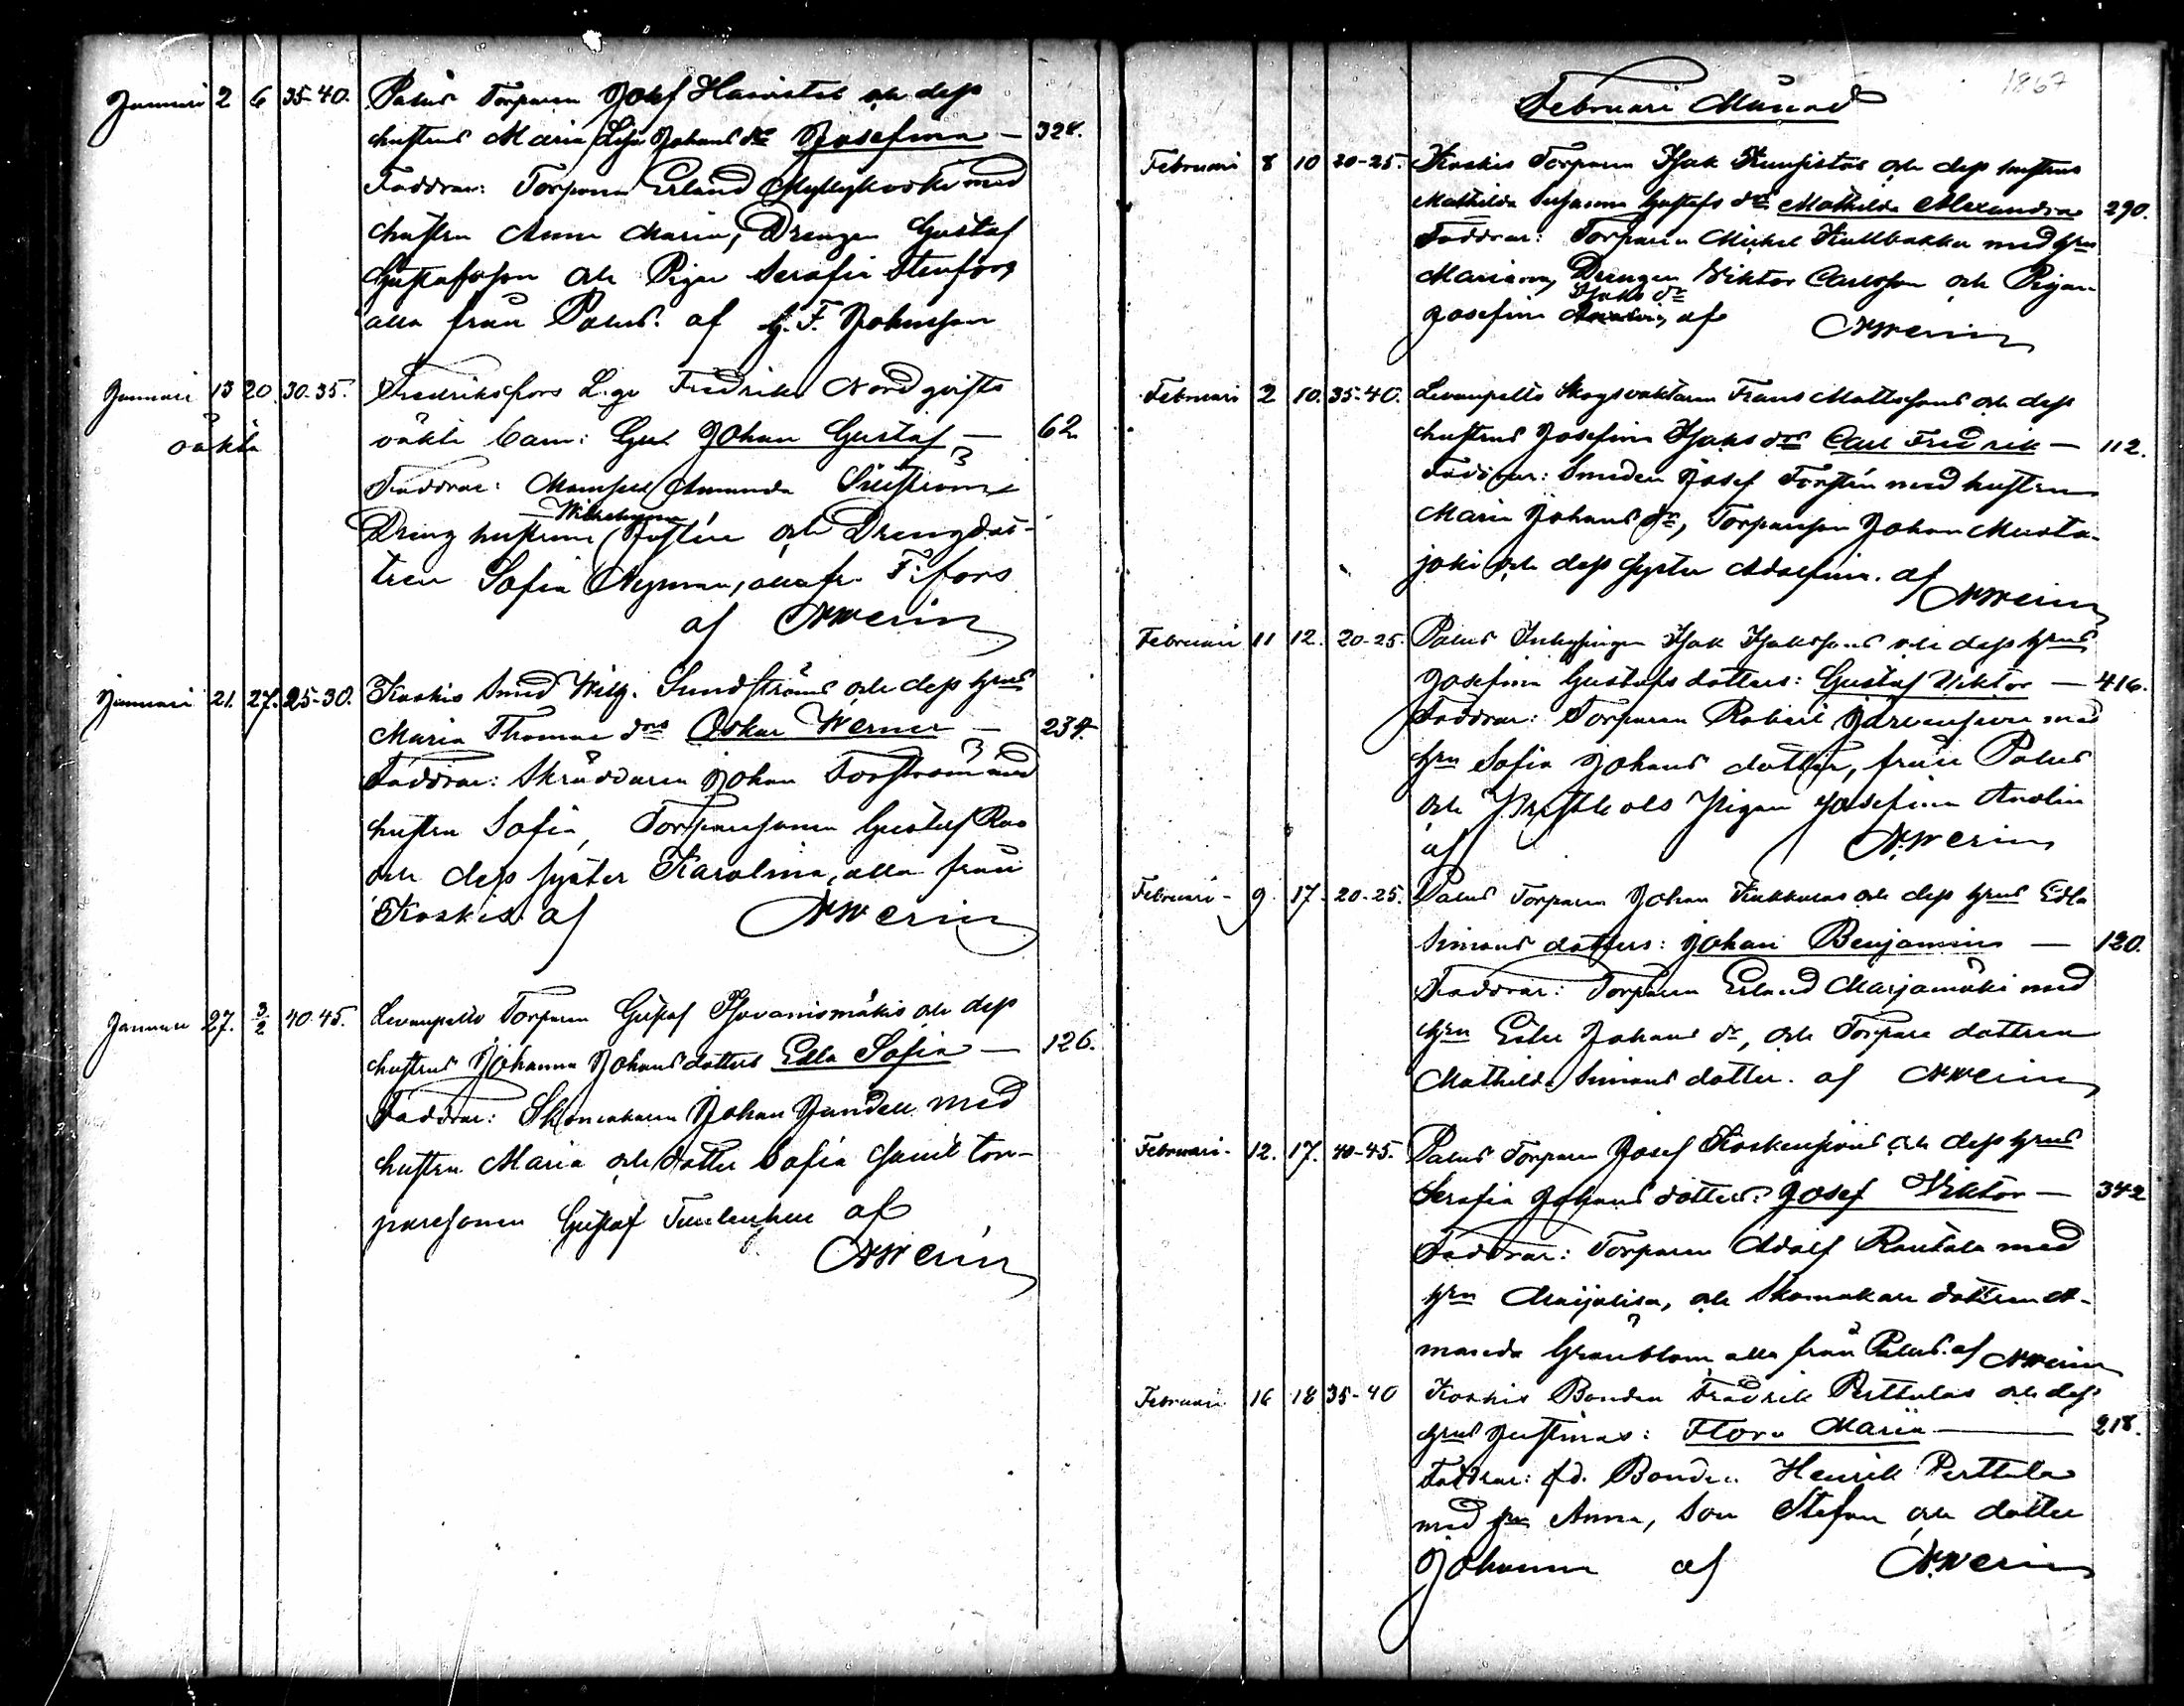 Januari 2 6 35-40. Palus Torparen Josef Haavistos och dess
hustrus Maria Lisa Johans drs Josefina — 328.
Faddrar: Torparen Erland Myllykoski med
hustru Anna Maria, Drengen Gustaf
Gustafsson och Pigan Serafia Stenfors
alla från Palus. af G. F. Johnsson
Januari 13 20 30-35. Fredriksfors L.ge Fredrika Nord gvists
oäkta oäkta barn: Johan Gustaf — 62
Faddrar: Mamsell Amanda
Wilhelmina
Dreng hustrun och Drengdot-
tren Sofia Nyman, alla fr. F:fors
af NWerin
Januari 21. 27. 25-30. Koskis Smed Wilh. Sundströms och dess hrus
Maria Thomae drs Oskar Werner — 234.
Faddrar: Skräddaren Johan Forsström med
hustru Sofia, Torparesonen Gustaf
och dess syster Karolina, alla från
Koskis af NWerin
Januari 27. 3/2 40-45. Levanpelto Torparen Gustaf och dess
hustrus Johanna Johansdotters Edla Sofia — 126.
Faddrar: Skomakaren Johan med
hustru Maria och dotter Sofia samt tor-
paresonen Gustaf af
NWerin
1867
Februari Månad
Februari 8 10 20-25. Koskis Torparen Isak och dess hustrus
Mathilda Susanna Gustafs drs Mathilda Alexandra 290.
Faddrar: Torparen Michel Kullbakka med hru
Drengen Viktor Carlsson och Pigan
Isaks dr
Josefina af NWerin
Februari 2 10. 35-40. Levanpelto Skogsvaktaren Frans Mattssons och dess
hustrus Josefina Isaks drs Carl Fredrik — 112.
Faddrar: Smeden Josef Forstén med hustru
Maria Johans dr, Torparson Johan Musta-
joki och dess syster Adolfina. af
NWerin
Februari 11 12. 20-25. Palus Inhysingen Isak Isakssons och dess hrus
Josefina Gustafs dotters: Gustaf Viktor — 416.
Faddrar: Torparen Robert Järvensivu med
hru Sofia Johans dotter, från Palus
och Pigan Josefina
af N.Werin
Februari - 9. 17. 20-25. Palus Torparen Johan Kukkulas och dess hrus Edla
Simons dotters: Johan Benjamin — 120.
Faddrar: Torparen Erland Marjamäki med
hru Johans dr, och Torpare dottren
Mathilda Simons dotter. af NWerin
Februari - 12. 17. 40-45. Palus Torparen Josef Koskensivus och dess hrus
Serafia Johans dotters: Josef Viktor — 342
Faddrar: Torparen Adolf Rautala med
hru Maijalisa, och Skomakare dottren A-
manda Granblom alla från Palus. af NWerin
Februari 16 18 35-40 Koskis Bonden Fredrik Perttulas och dess
hrus Justinas: Flora Maria — 218.
Faddrar: fd. Bonden Henrik Perttula
med hru Anna, Son Stefan och dotter
Johanna af N.Werin